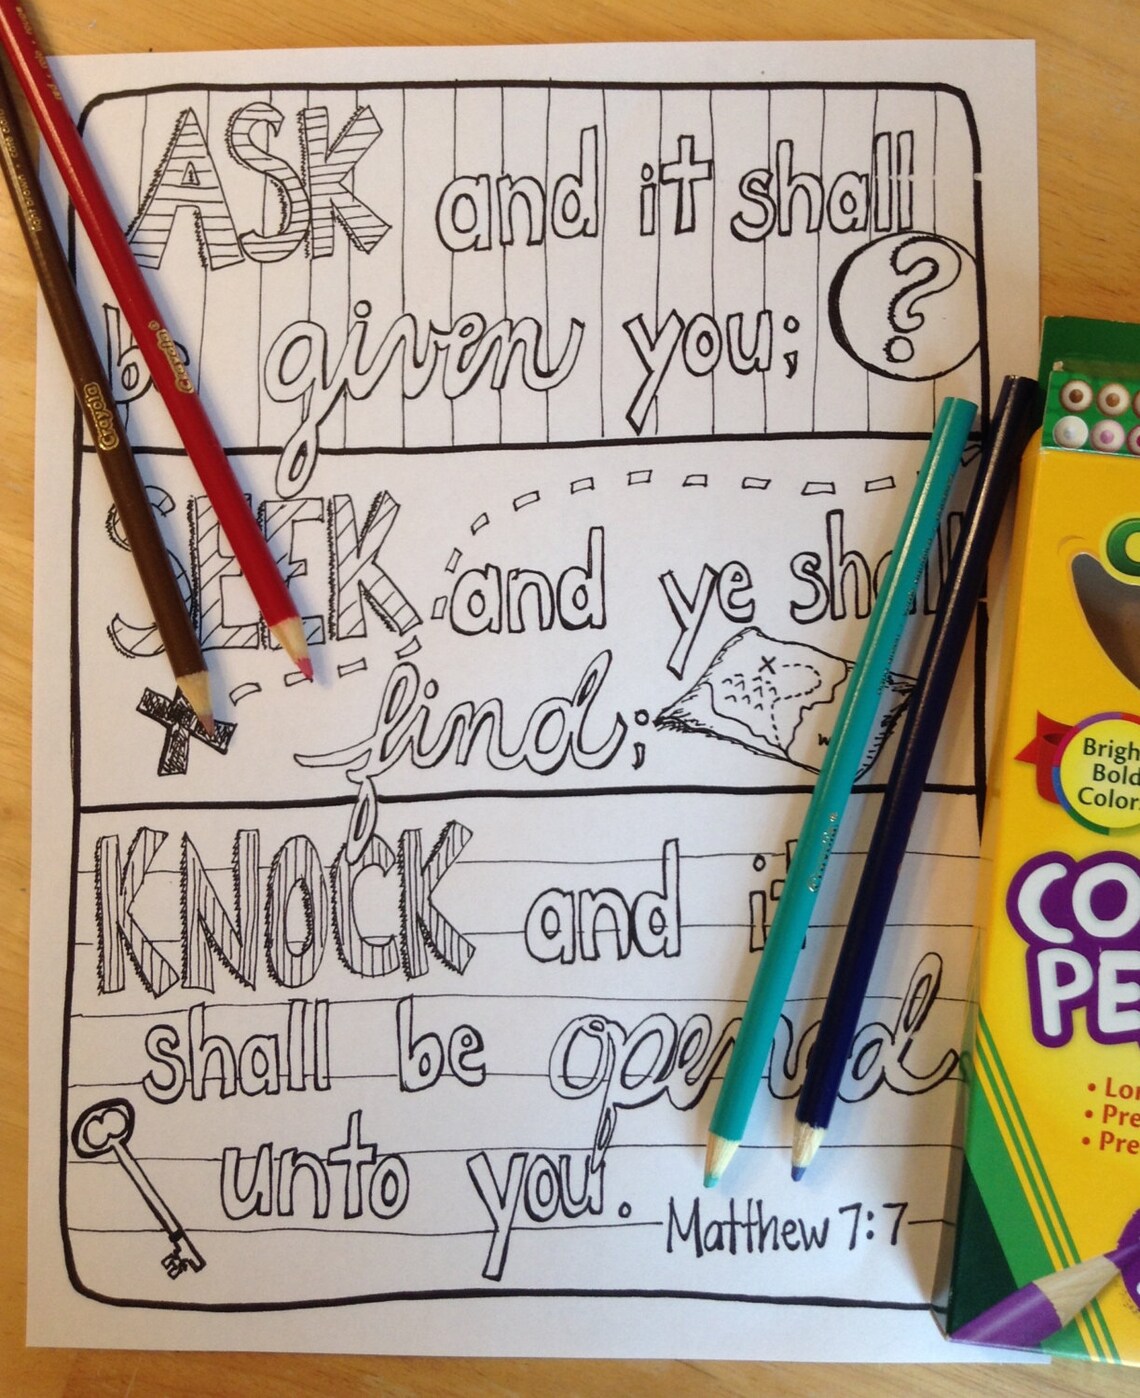 ASK and it shall
be given you;
?
SEEK and ye shall
find;
KNOCK and it
shall be opened
unto you.
Matthew 7:7
Crayola
Crayola
Bright
Bold
Colors
CO
PE
• Lon
• Pre
• Pre